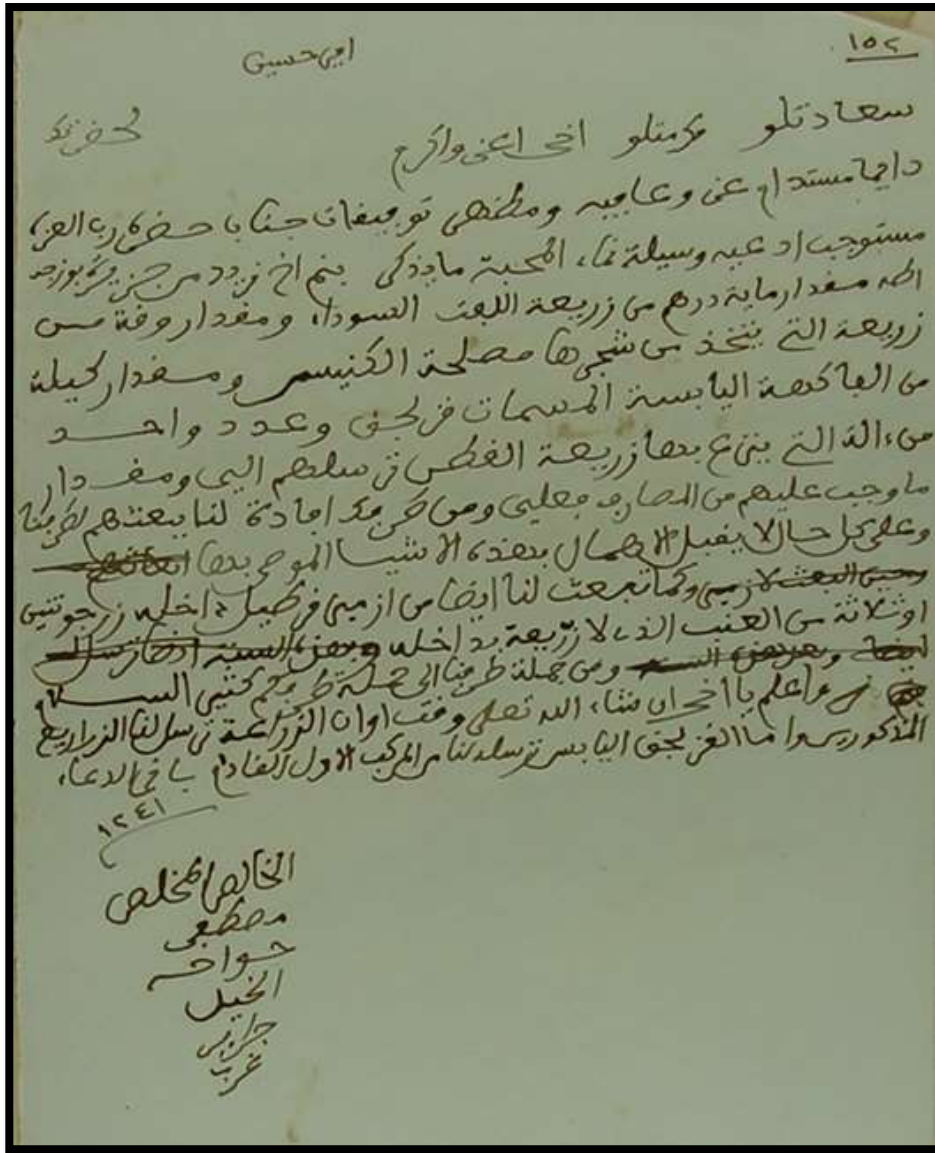 ١٥٢
امي حسين
سعادتلو مكرمتلو اخي اعني واكرم لحضرتك
دايما مستدام عز وعافيه ومظهر توفيفات جناب حضرة رب العزة
مستوجب ادعيه وسيلة نماء المحبة
الله مفدار ماية درهم من زريعة اللفت السوداء ومفدار وفة من
زريعة التي يتخذ من شجرها مصلحة الكنيس ومفدار كيلة
من الفاكهة اليابسة المسمات فزلجق وعدد واحد
من ءالة التي ينزع بها زريعة الفطن ترسلهم الي ومفدار
ما وجب عليهم من المصارف فعلي ومن كرمكم افادة لنا ببعثهم لطرفنا
وعلى كل حال لا يفبل الاهمال بهذه الاشيا الموصى بها
وكما تبعث لنا ايضا من ازمير داخله زرجونتين
او ثلاثة من العنب الذي لا زريعة بداخله
ومن جملة طرفنا الى جملة طرفكم كثير السلام
واعلم يا اخي ان شاء الله تعلى وفت اوان الزراعة ترسل لنا الزراريع
المذكورين واما الفزلجق اليابس ترسله لنا من المركب الاول الفادم بافي الدعاء
١٢٤١
الخالص المخلص
مصطفى
خواجه
الخيل
جزاير
غرب